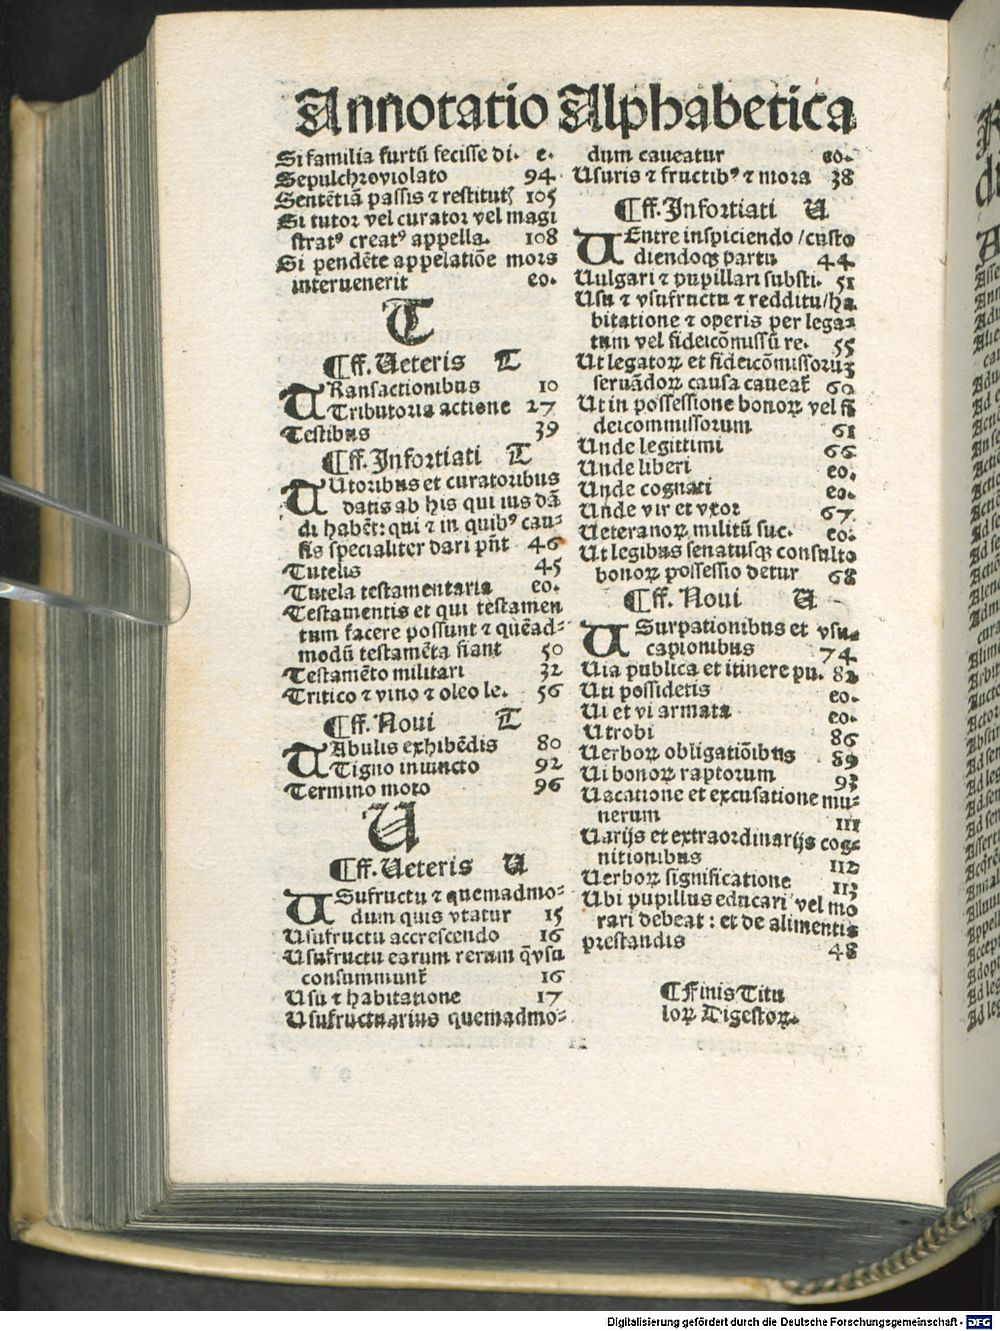 Annotatio Alphabetica
Si familia furtū fecisse di. e.
Sepulchroviolato 94
Sentētiā passis ⁊ restitutꝭ 105
Si tutor vel curator vel magi
stratꝰ creatꝰ appella. 108
Si pendēte appelatiōe mors
interuenerit eo.
T
¶ff. Ueteris T
TRansactionibus 10
Tributoria actione 27
Testibus 39
¶ff. Infortiati T
TUtoribus et curatoribus
datis ab his qui ius dā
di habēt: qui ⁊ in quibꝰ cau⸗
sis specialiter dari pn̄t 46
Tutelis 45
Tutela testamentaria eo.
Testamentis et qui testamen
tum facere possunt ⁊ quēad⸗
modū testamēta fiant 50
Testamēto militari 32
Tritico ⁊ vino ⁊ oleo le. 56
¶ff. Noui T
TAbulis exhibēdis 80
Tigno iniuncto 92
Termino moto 96
U
¶ff. Ueteris U
USufructu ⁊ quemadmo⸗
dum quis vtatur 15
Usufructu accrescendo 16
Usufructu earum rerum q̄ vsu
consummunt̄ 16
Usu ⁊ habitatione 17
Usufructuarius quemadmo⸗
dum caueatur eo.
Usuris ⁊ fructibꝰ ⁊ mora 38
¶ff. Infortiati U
UEntre inspiciendo / custo
diendoqꝫ partu 44
Uulgari ⁊ pupillari substi. 51
Usu ⁊ vsufructu ⁊ redditu/ha
bitatione ⁊ operis per lega⸗
tum vel fideicōmissū re. 55
Ut legatoꝝ et fideicōmissoruꝫ
seruādoꝝ causa caueat̄ 60
Ut in possessione bonoꝝ vel fi
deicommissorum 61
Unde legittimi 66
Unde liberi eo.
Unde cognati eo.
Unde vir et vxor 67
Ueteranoꝝ militū suc. eo.
Ut legibus senatusqꝫ consulto
bonoꝝ possessio detur 68
¶ff. Noui U
USurpationibus et vsu⸗
capionibus 74
Uia publica et itinere pu. 82
Uti possidetis eo.
Ui et vi armata eo.
Utrobi 86
Uerboꝝ obligatiōibus 89
Ui bonoꝝ raptorum 93
Uacatione et excusatione mu⸗
nerum 111
Uarijs et extraordinarijs cog⸗
nitionibus 112
Uerboꝝ significatione 113
Ubi pupillus educari vel mo
rari debeat: et de alimentis
prestandis 48
¶Finis Titu
loꝝ Digestoꝝ.
Digitalisierung gefördert durch die Deutsche Forschungsgemeinschaft - DFG